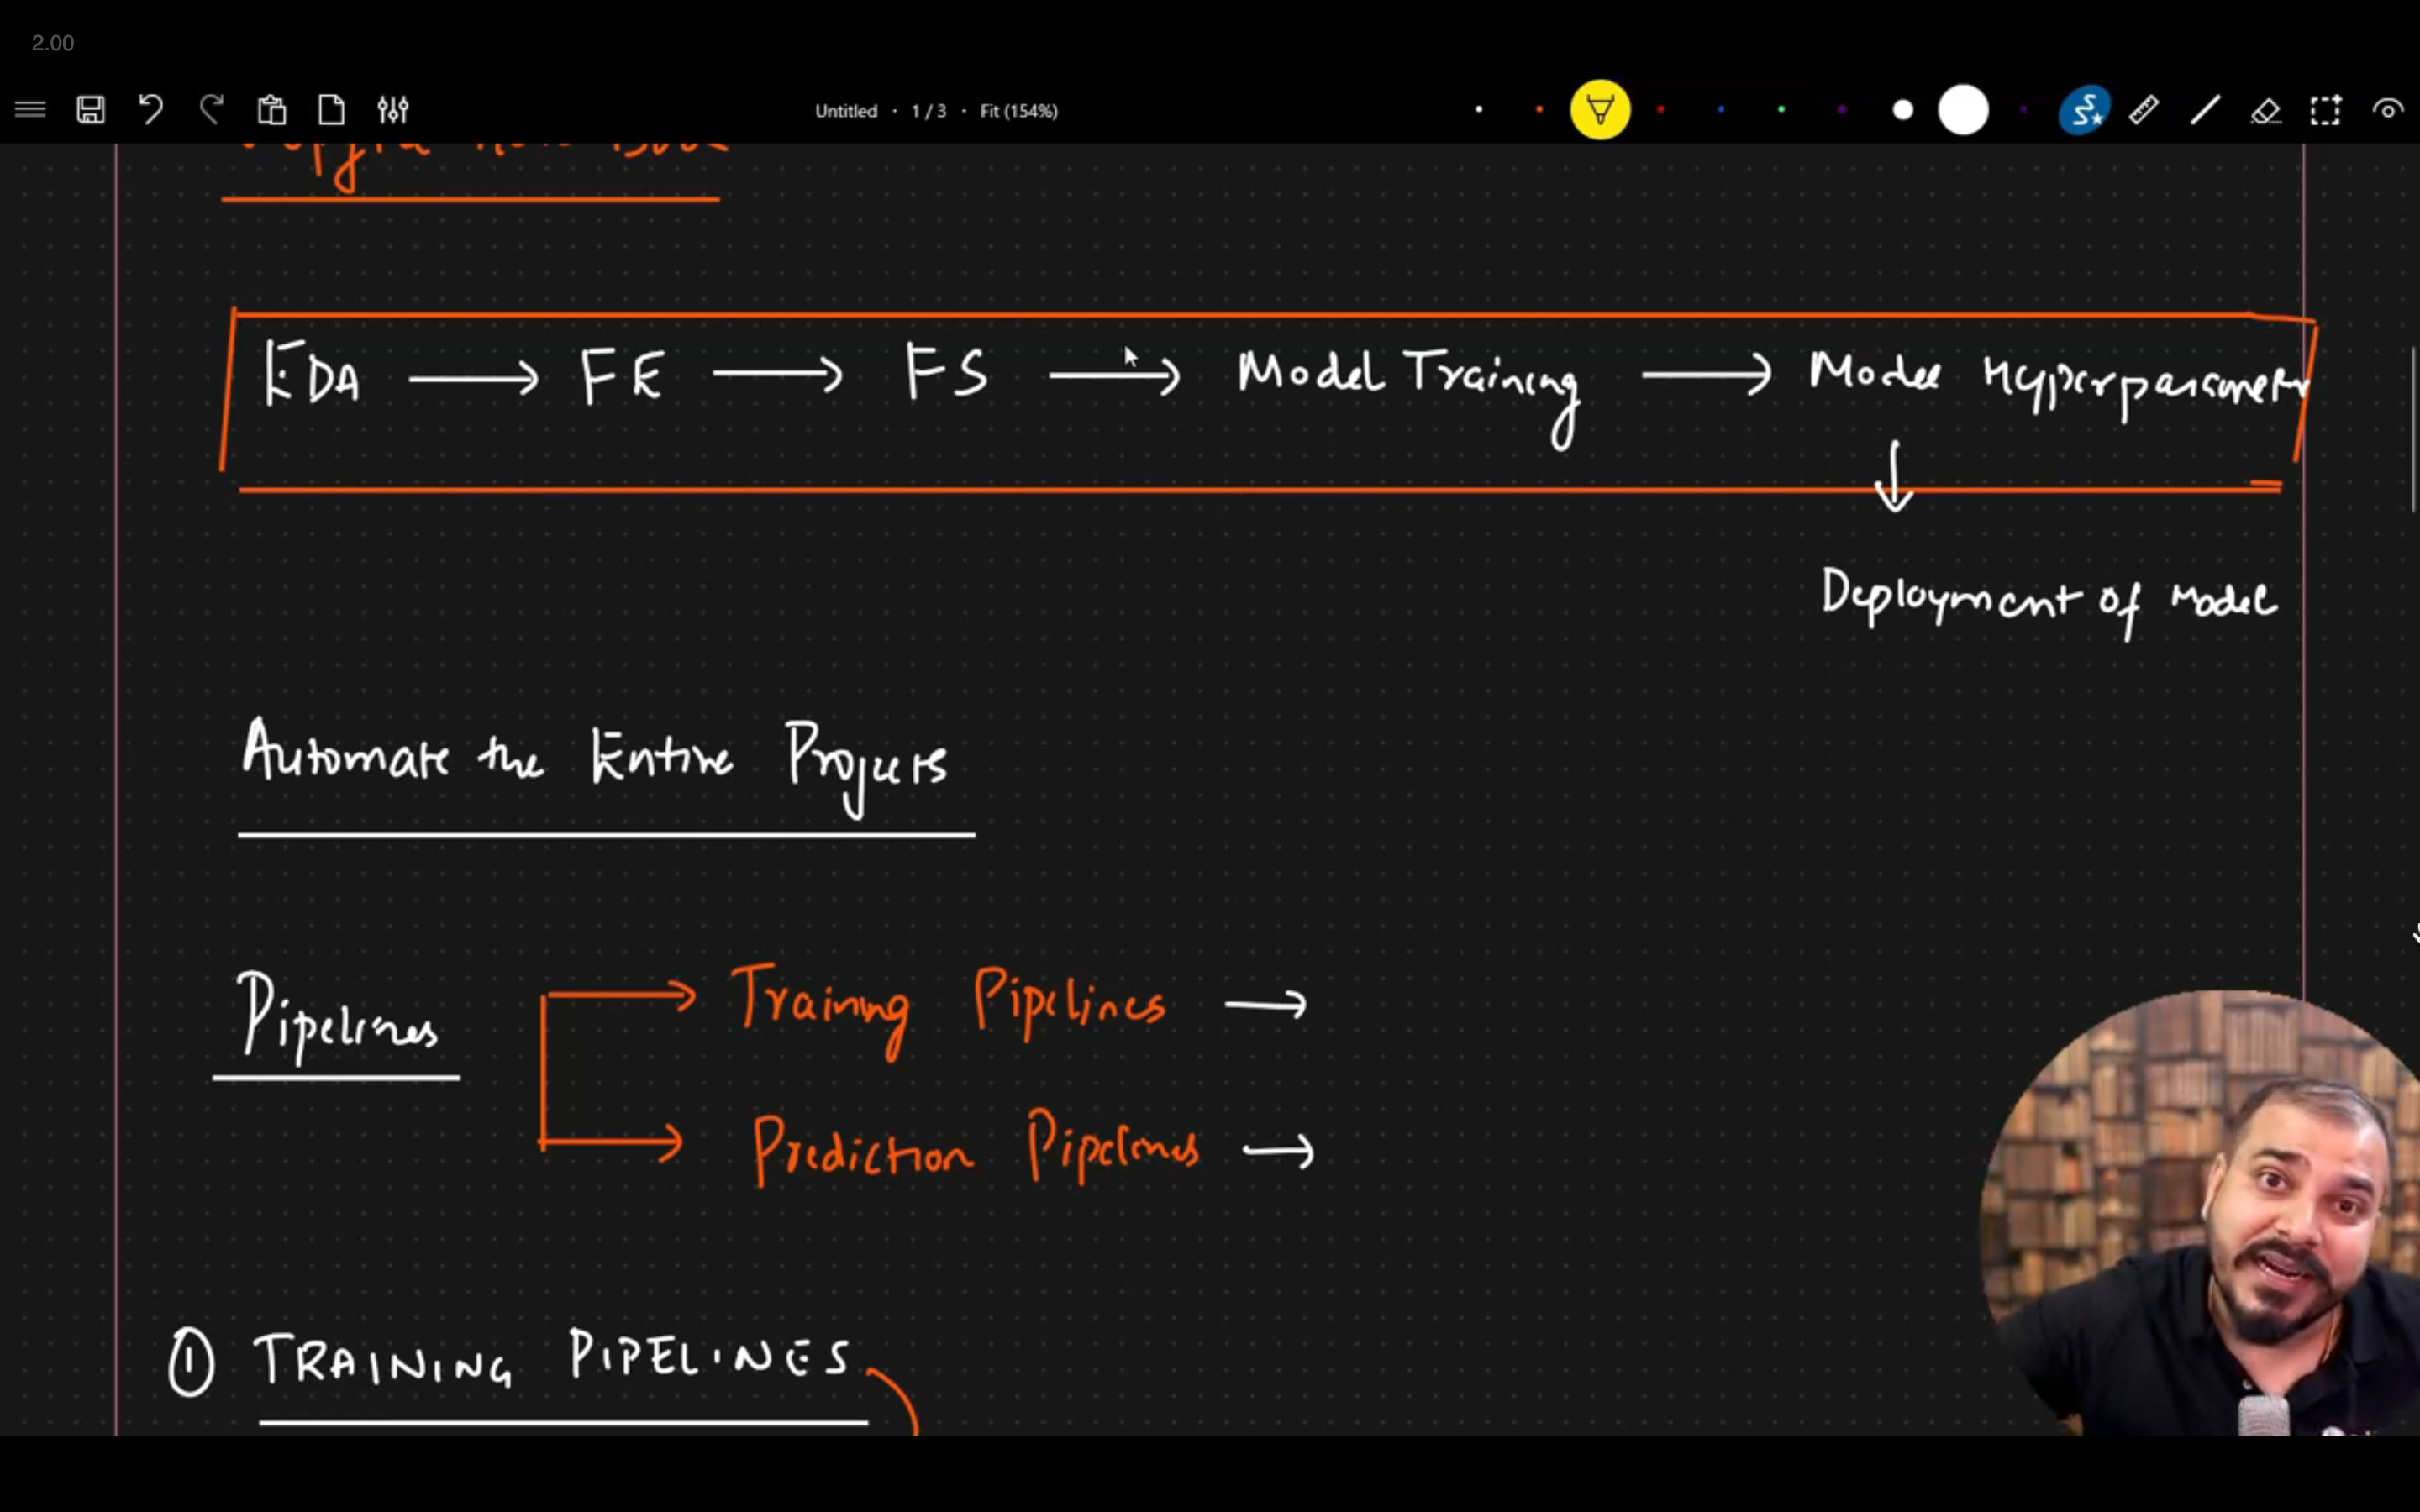 2.00
Untitled · 1 / 3 · Fit (154%)
EDA → FE → FS → Model Training → Model Hyperparameter
↓
Deployment of Model
Automate the Entire Projects
Pipelines → Training Pipelines →
→ Prediction Pipelines →
① TRAINING PIPELINES